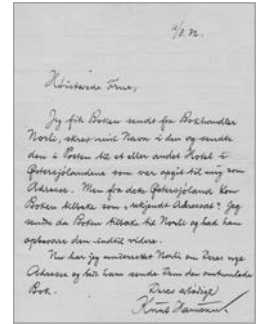 4/8. 32.
Höistærede Frue,
Jeg fik Boken sendt fra Bokhandler
Norli, skrev mit Navn i den og sendte
den i Posten til et eller andet Hotel i
Østersjølandene som var opgit til mig som
Adresse. Men fra dette Østersjøland kom
Boken tilbake som „ukjendt Adressat". Jeg
sendte da Boken tilbake til Norli og bad ham
opbevare den indtil videre.
Nu har jeg underrettet Norli om Deres nye
Adresse og bedt ham sende Dem den omhandlede
Bok.
Deres ærbødige
Knut Hamsun.